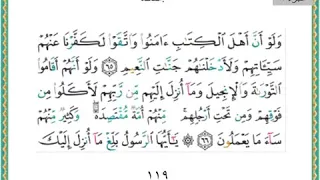 وَلَوْ أَنَّ أَهْلَ ٱلْكِتَٰبِ ءَامَنُوا۟ وَٱتَّقَوْا۟ لَكَفَّرْنَا عَنْهُمْ
سَيِّـَٔاتِهِمْ وَلَأَدْخَلْنَٰهُمْ جَنَّٰتِ ٱلنَّعِيمِ ٦٥ وَلَوْ أَنَّهُمْ أَقَامُوا۟
ٱلتَّوْرَىٰةَ وَٱلْإِنجِيلَ وَمَآ أُنزِلَ إِلَيْهِم مِّن رَّبِّهِمْ لَأَكَلُوا۟ مِن
فَوْقِهِمْ وَمِن تَحْتِ أَرْجُلِهِم ۚ مِّنْهُمْ أُمَّةٌ مُّقْتَصِدَةٌ ۖ وَكَثِيرٌ مِّنْهُمْ
سَآءَ مَا يَعْمَلُونَ ٦٦ يَٰٓأَيُّهَا ٱلرَّسُولُ بَلِّغْ مَآ أُنزِلَ إِلَيْكَ
١١٩